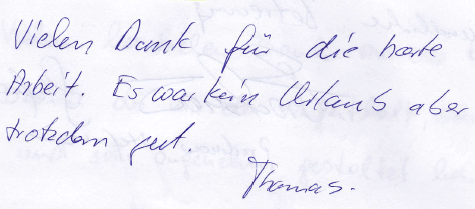 Vielen Dank für die harte
Arbeit. Es war kein Urlaub aber
trotzdem gut.
Thomas.